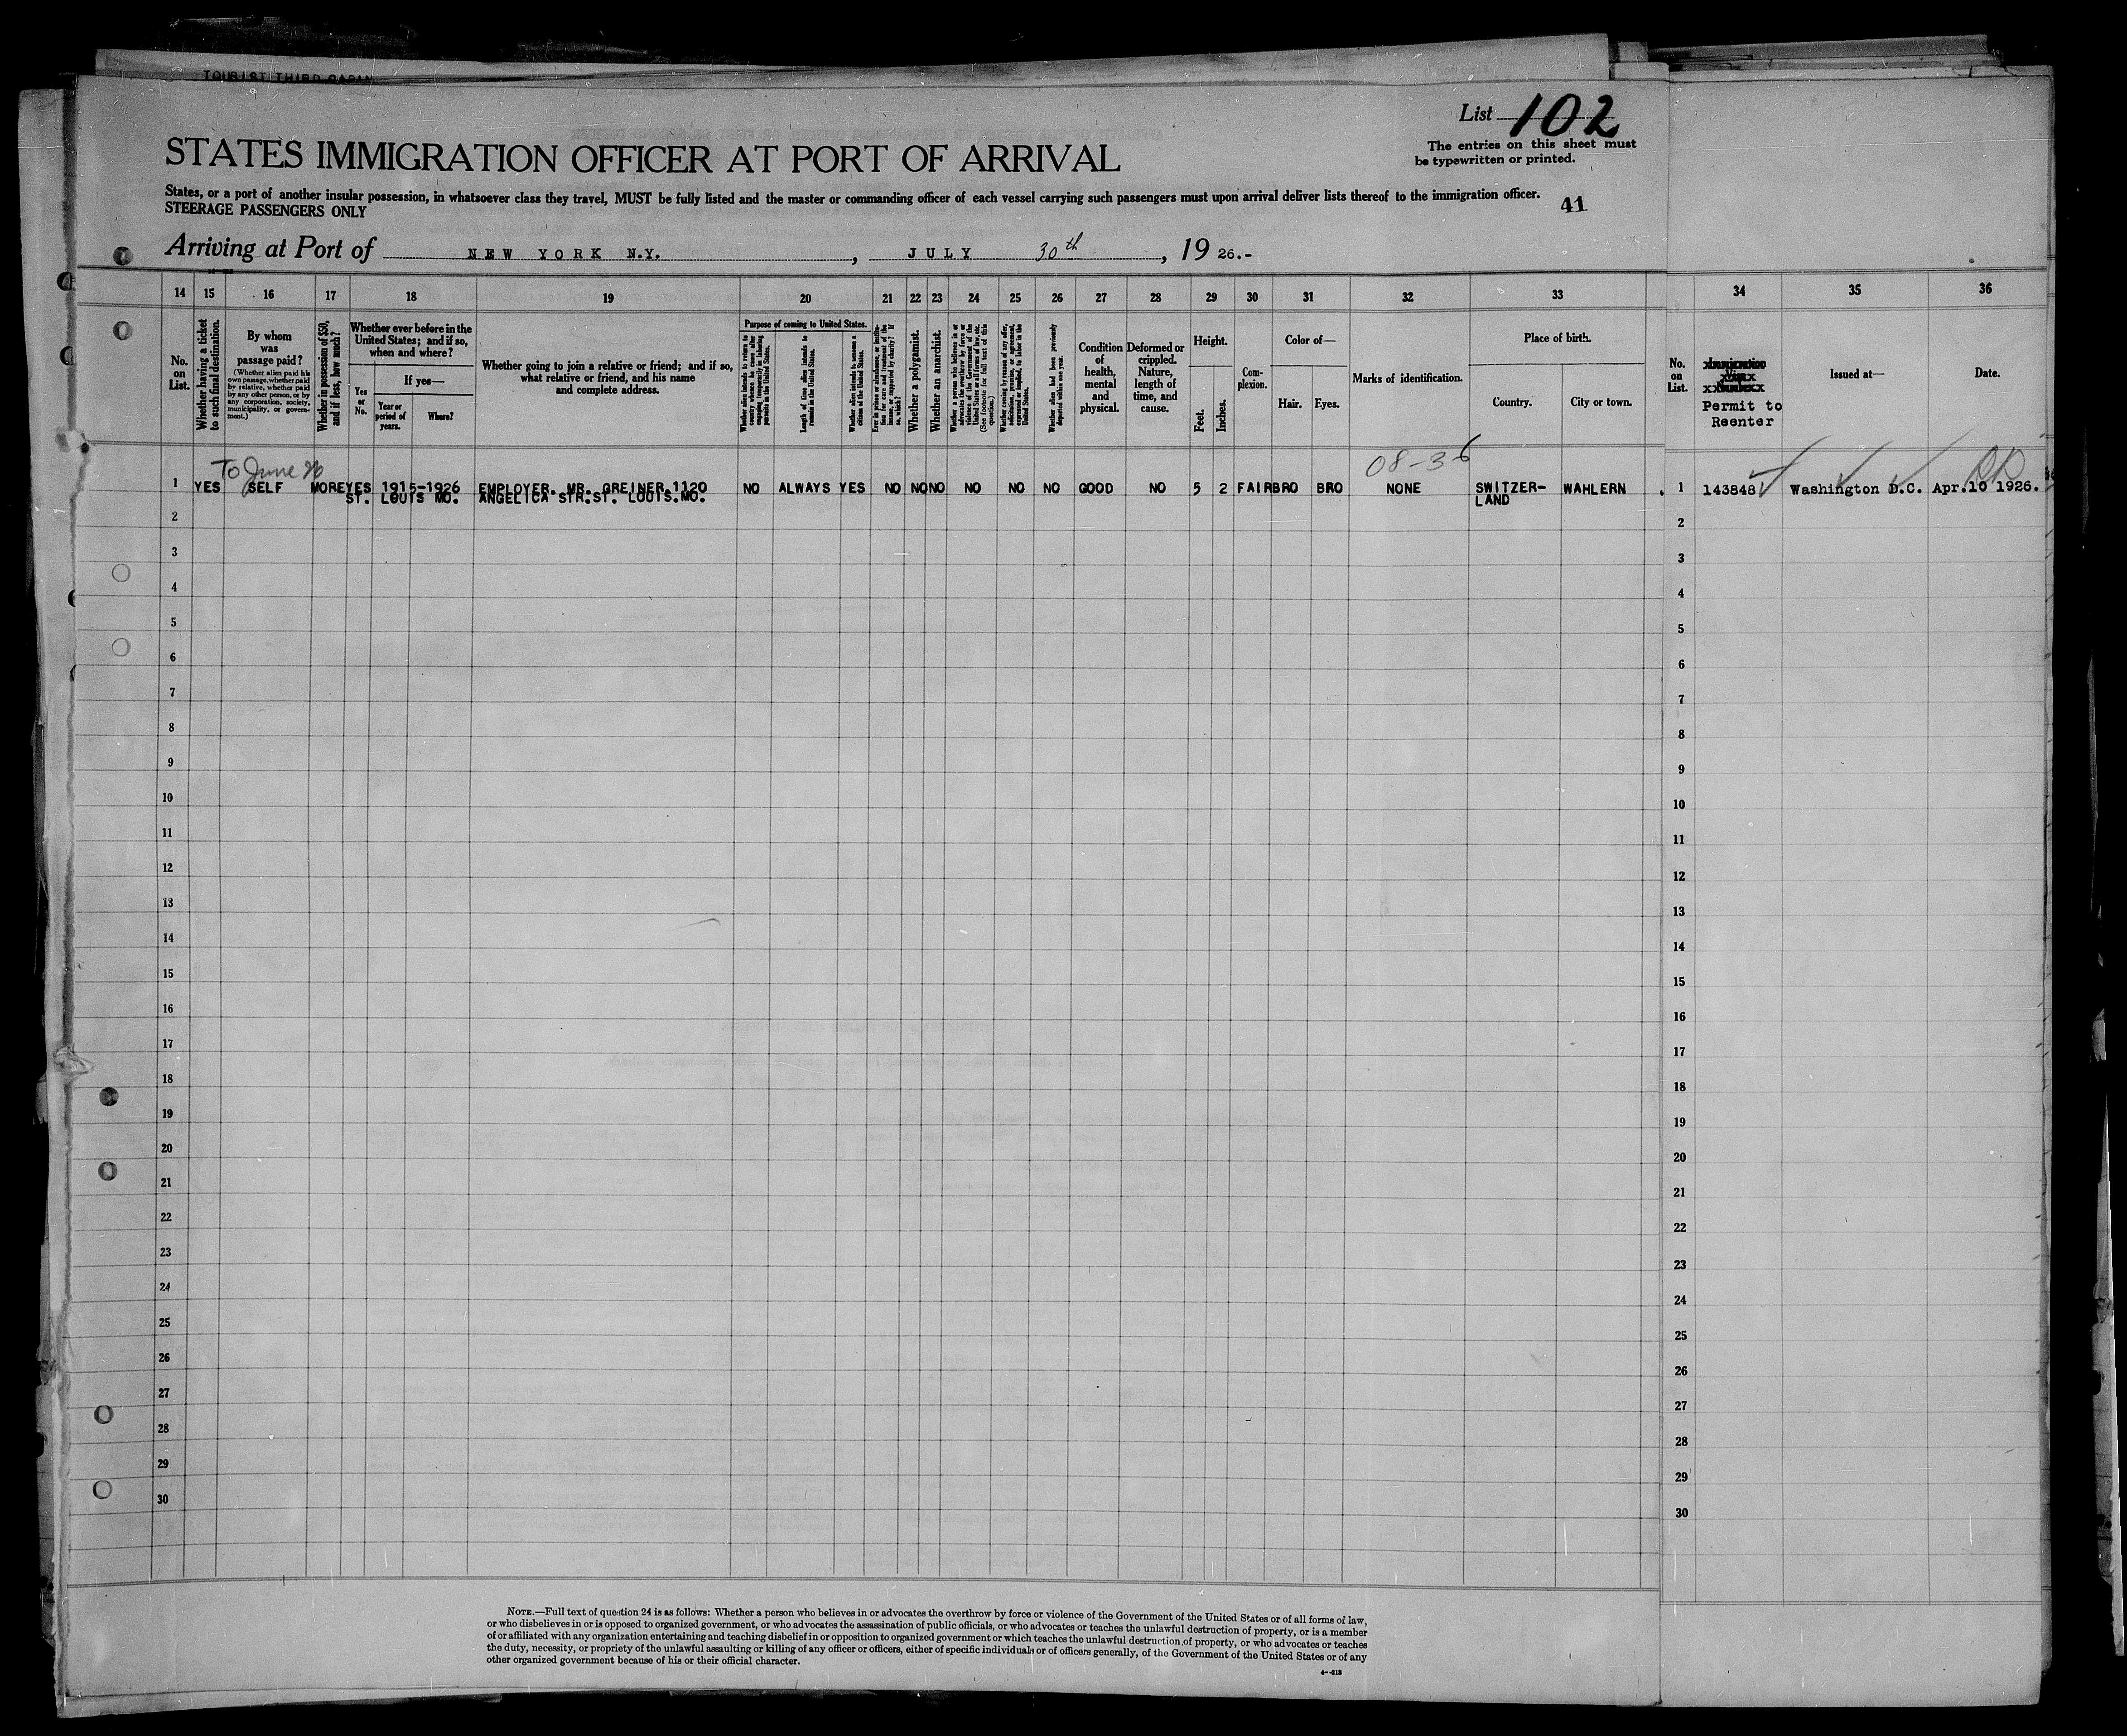 TOURIST THIRD CABIN
List 102
The entries on this sheet must
be typewritten or printed.
STATES IMMIGRATION OFFICER AT PORT OF ARRIVAL
States, or a port of another insular possession, in whatsoever class they travel, MUST be fully listed and the master or commanding officer of each vessel carrying such passengers must upon arrival deliver lists thereof to the immigration officer.
STEERAGE PASSENGERS ONLY
41
Arriving at Port of NEW YORK N.Y. , JULY 30th , 19 26.-
14 15 16 17 18 19 20 21 22 23 24 25 26 27 28 29 30 31 32 33 34 35 36
No.
on
List.
Whether having a ticket
to such final destination.
By whom
was
passage paid?
(Whether alien paid his
own passage, whether paid
by relative, whether paid
by any other person, or by
any corporation, society,
municipality, or govern-
ment.)
Whether in possession of $50,
and if less, how much?
Whether ever before in the
United States; and if so,
when and where?
Yes
or
No.
If yes—
Year or
period of
years.
Where?
Whether going to join a relative or friend; and if so,
what relative or friend, and his name
and complete address.
Purpose of coming to United States.
Whether alien intends to return to
country whence he came after
engaging temporarily in laboring
pursuits in the United States.
Length of time alien intends to
remain in the United States.
Whether alien intends to become a
citizen of the United States.
Ever in prison or almshouse, or institu-
tion for care and treatment of the
insane, or supported by charity? If
so, which?
Whether a polygamist.
Whether an anarchist.
Whether a person who believes in or
advocates the overthrow by force or
violence of the Government of the
United States or all forms of law, etc.
(See footnote for full text of this
question.)
Whether coming by reason of any offer,
solicitation, promise, or agreement,
expressed or implied, to labor in the
United States.
Whether alien had been previously
deported within one year.
Condition
of
health,
mental
and
physical.
Deformed or
crippled.
Nature,
length of
time, and
cause.
Height.
Feet.
Inches.
Com-
plexion.
Color of—
Hair.
Eyes.
Marks of identification.
Place of birth.
Country.
City or town.
No.
on
List.
Permit to
Reenter
Issued at—
Date.
To June 26
08-36
1 YES SELF MORE YES 1915-1926 EMPLOYER. MR. GREINER.1120 NO ALWAYS YES NO NO NO NO NO NO GOOD NO 5 2 FAIR BRO BRO NONE SWITZER- WAHLERN 1 143848 Washington D.C. Apr.10 1926.
ST. LOUIS MO. ANGELICA STR.ST. LOUIS.MO. LAND
2 2
3 3
4 4
5 5
6 6
7 7
8 8
9 9
10 10
11 11
12 12
13 13
14 14
15 15
16 16
17 17
18 18
19 19
20 20
21 21
22 22
23 23
24 24
25 25
26 26
27 27
28 28
29 29
30 30
NOTE.—Full text of question 24 is as follows: Whether a person who believes in or advocates the overthrow by force or violence of the Government of the United States or of all forms of law,
or who disbelieves in or is opposed to organized government, or who advocates the assassination of public officials, or who advocates or teaches the unlawful destruction of property, or is a member
of or affiliated with any organization entertaining and teaching disbelief in or opposition to organized government or which teaches the unlawful destruction of property, or who advocates or teaches
the duty, necessity, or propriety of the unlawful assaulting or killing of any officer or officers, either of specific individuals or of officers generally, of the Government of the United States or of any
other organized government because of his or their official character.